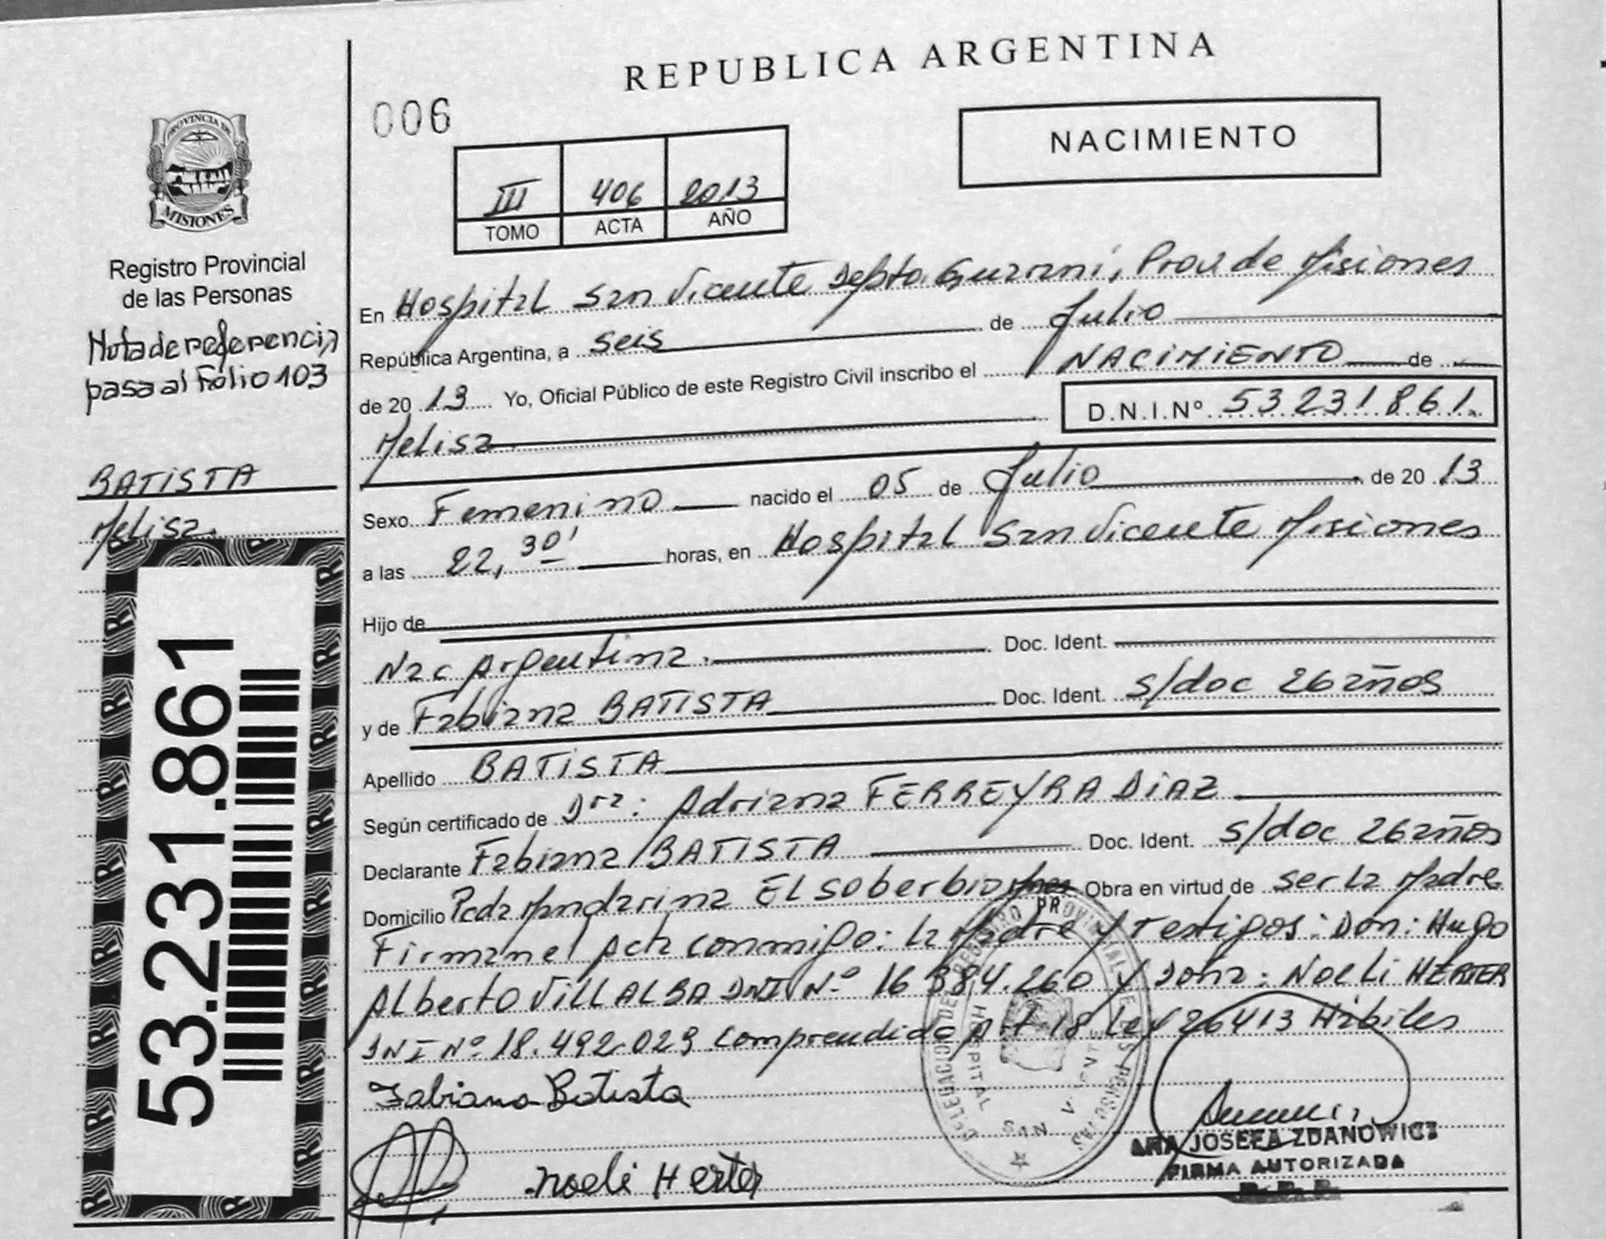 REPUBLICA ARGENTINA
006
NACIMIENTO
III 406 2013
TOMO ACTA AÑO
PROVINCIA DE
MISIONES
Registro Provincial
de las Personas
Nota de referencia
pasa al Folio 103
BATISTA
Melisa.
53.231.861
En Hospital San Vicente Depto. Guarani, Prov de Misiones
República Argentina, a seis de Julio
de 20 13 Yo, Oficial Público de este Registro Civil inscribo el NACIMIENTO de
Melisa. D.N.I.Nº 53231861.
Sexo Femenino nacido el 05 de Julio de 20 13
a las 22,30' horas, en Hospital San Vicente Misiones
Hijo de
Nac Argentina. Doc. Ident.
y de Fabiana BATISTA Doc. Ident. s/doc 26 años
Apellido BATISTA
Según certificado de Dra: Adriana FERREYRA DIAZ
Declarante Fabiana BATISTA Doc. Ident. s/doc 26 años
Domicilio Pcda Mandarina El Soberbio Mnes Obra en virtud de ser la Madre
Firman el Acta conmigo: la Madre y Testigos: Don: Hugo
Alberto VILLALBA DNI Nº 16 384.260 y Dona: Noeli HERTER
DNI Nº 18.492.029 Comprendido Art 18 Ley 26413 Hábiles
Fabiana Batista
Noeli Herter
DELEGACION DEL REGISTRO PROVINCIAL DE LAS PERSONAS
HOSPITAL SAN VICENTE
ARA JOSEFA ZDANOWICZ
FIRMA AUTORIZADA